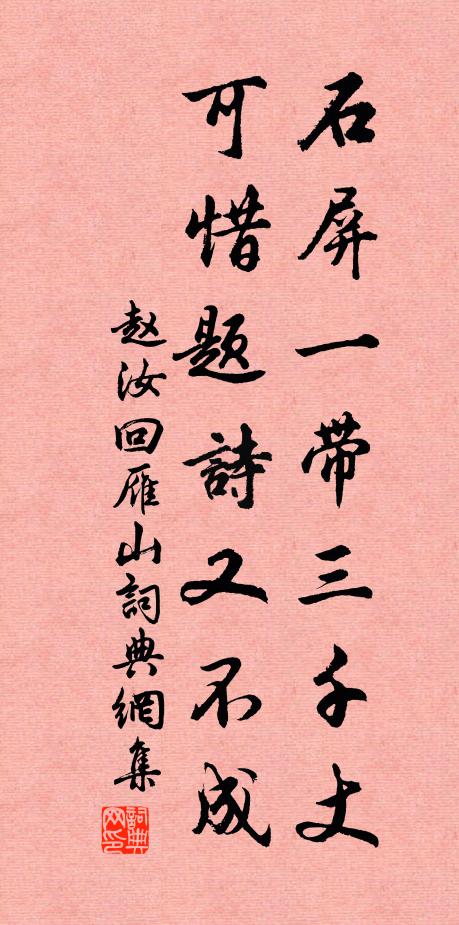 石屏一带三千丈
可惜题詩又不成
赵汝回雁山詞典網集
詞典网印